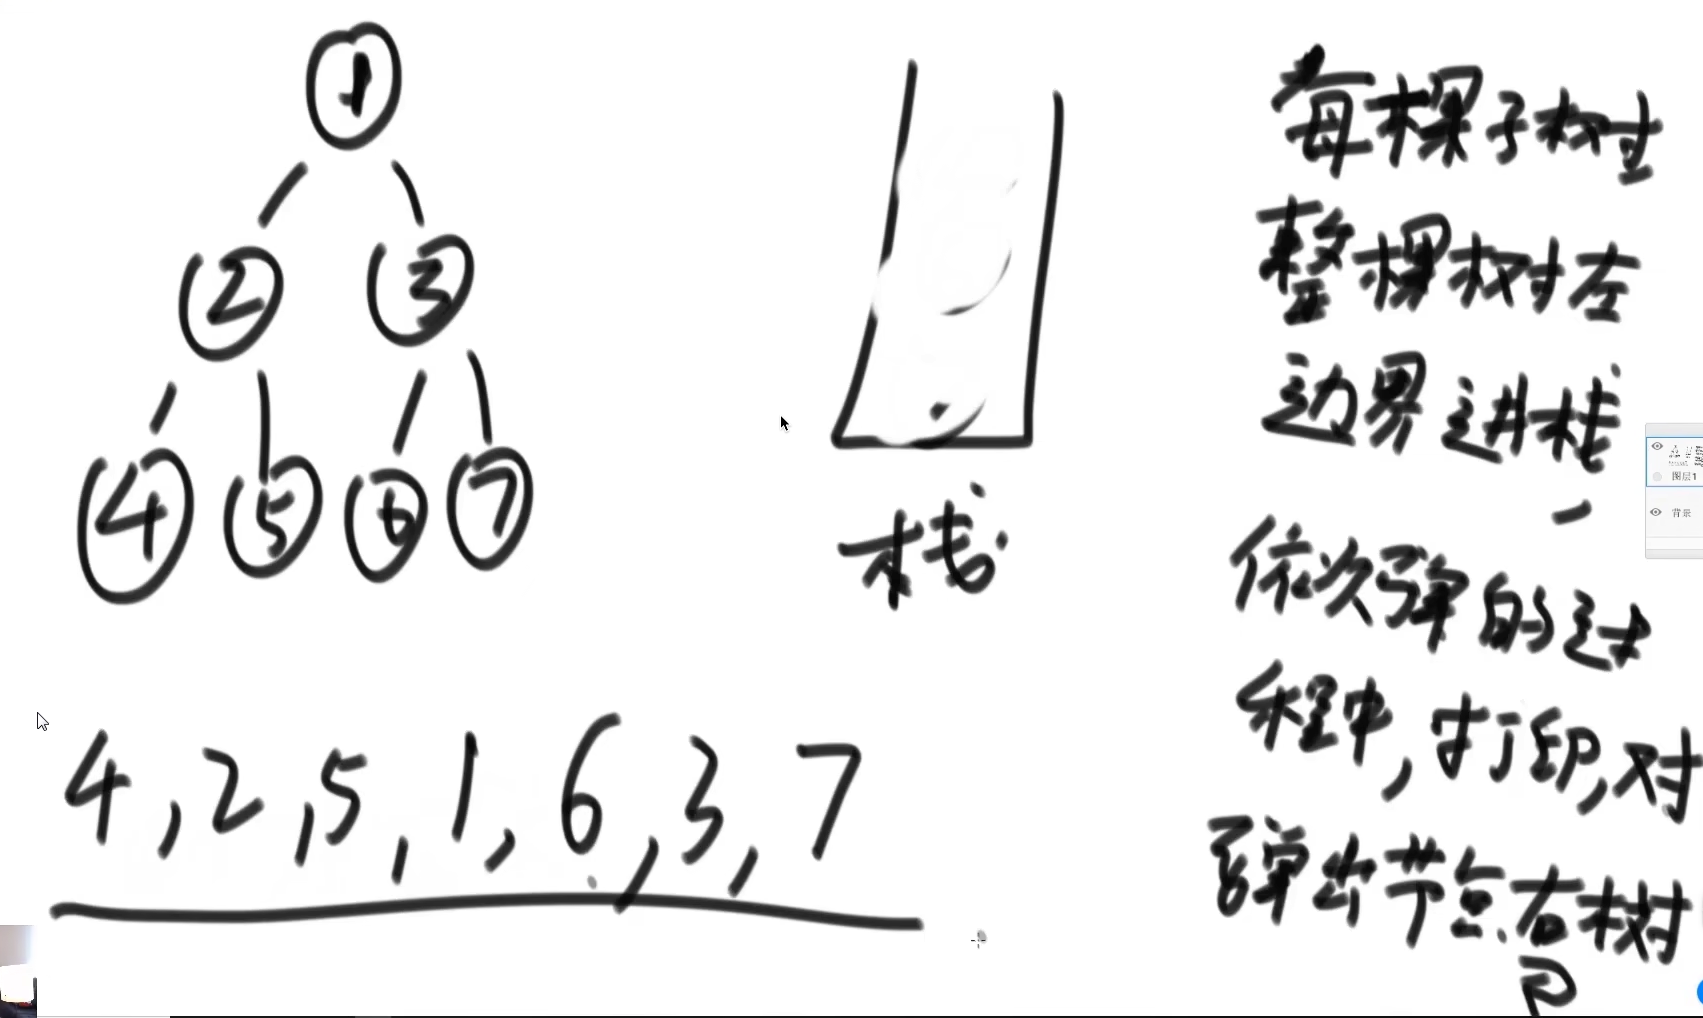 1
2 3
4 5 6 7
栈
4,2,5,1,6,3,7
每棵子树
整棵树左
边界进栈,
依次弹的过
程中,打印,对
弹出节点.右树
图层1
背景